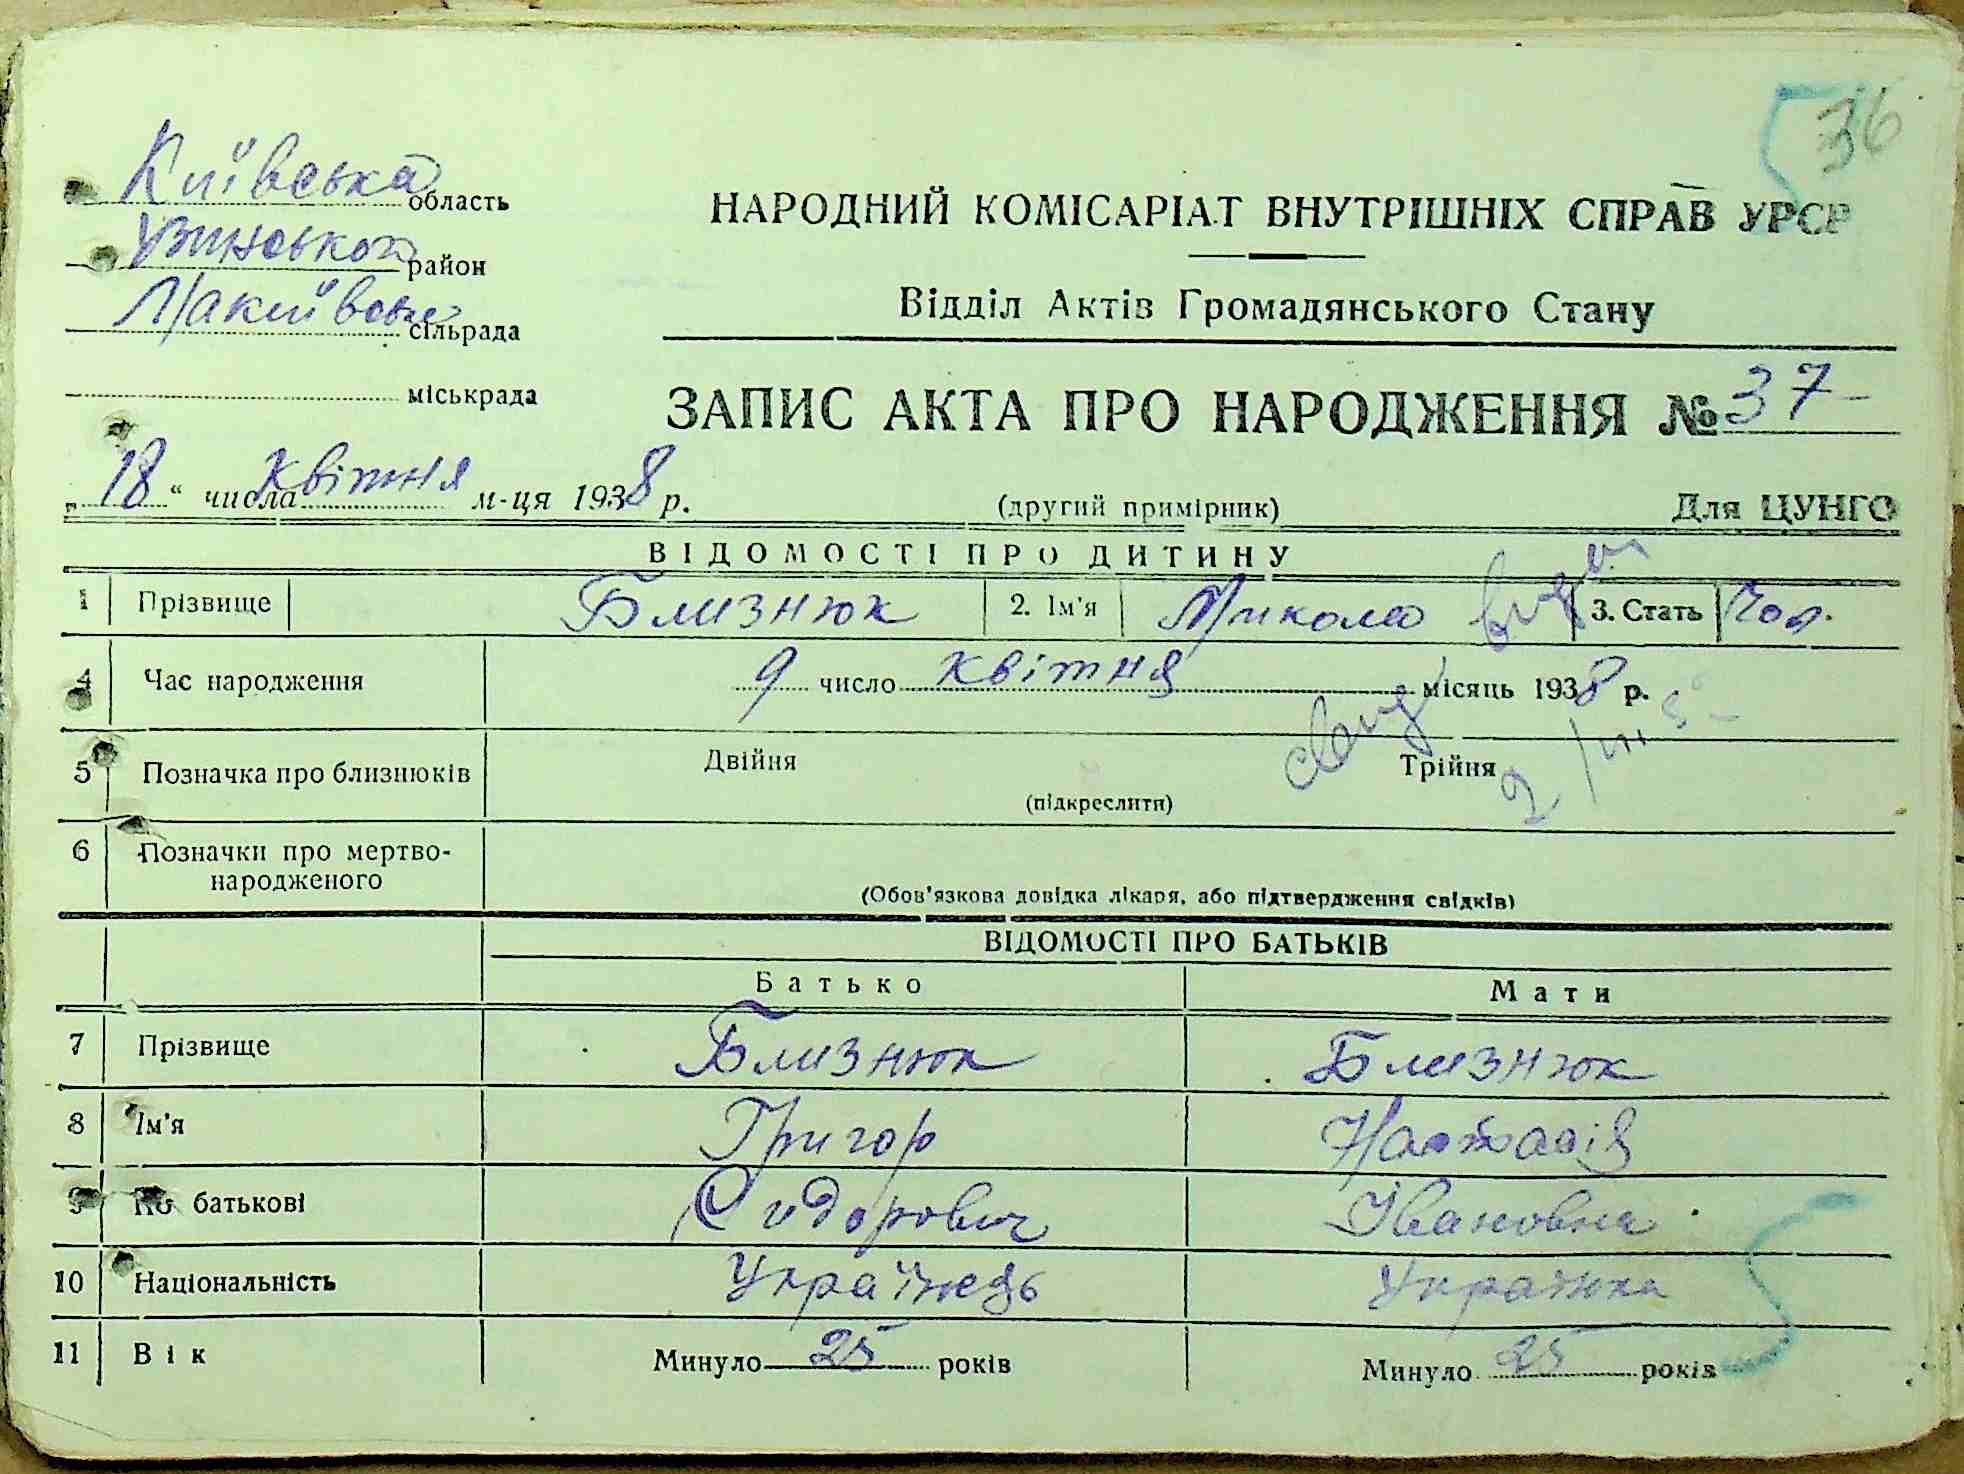 36
Київська область
Узинський район
Макиївська сільрада
міськрада
НАРОДНИЙ КОМІСАРІАТ ВНУТРІШНІХ СПРАВ УРСР
Відділ Актів Громадянського Стану
ЗАПИС АКТА ПРО НАРОДЖЕННЯ № 37
„18“ числа квітня м-ця 1938 р.
(другий примірник)
Для ЦУНГО
ВІДОМОСТІ ПРО ДИТИНУ
1 Прізвище Близнюк 2. Ім'я Микола 3. Стать Чол.
4 Час народження 9 число квітня місяць 1938 р.
5 Позначка про близнюків Двійня Трійня
(підкреслити)
6 Позначки про мертво-
народженого
(Обов'язкова довідка лікаря, або підтвердження свідків)
ВІДОМОСТІ ПРО БАТЬКІВ
Батько Мати
7 Прізвище Близнюк Близнюк
8 Ім'я Григор Настасія
9 По батькові Сидорович Івановна
10 Національність Українець Українка
11 Вік Минуло 25 років Минуло 25 років